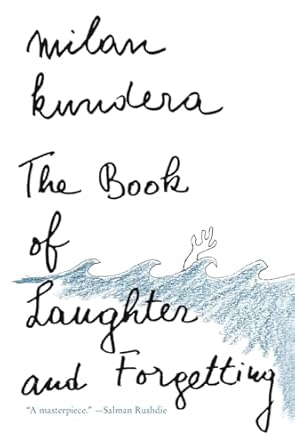 milan
kundera
The Book
of
Laughter
and Forgetting
"A masterpiece." —Salman Rushdie